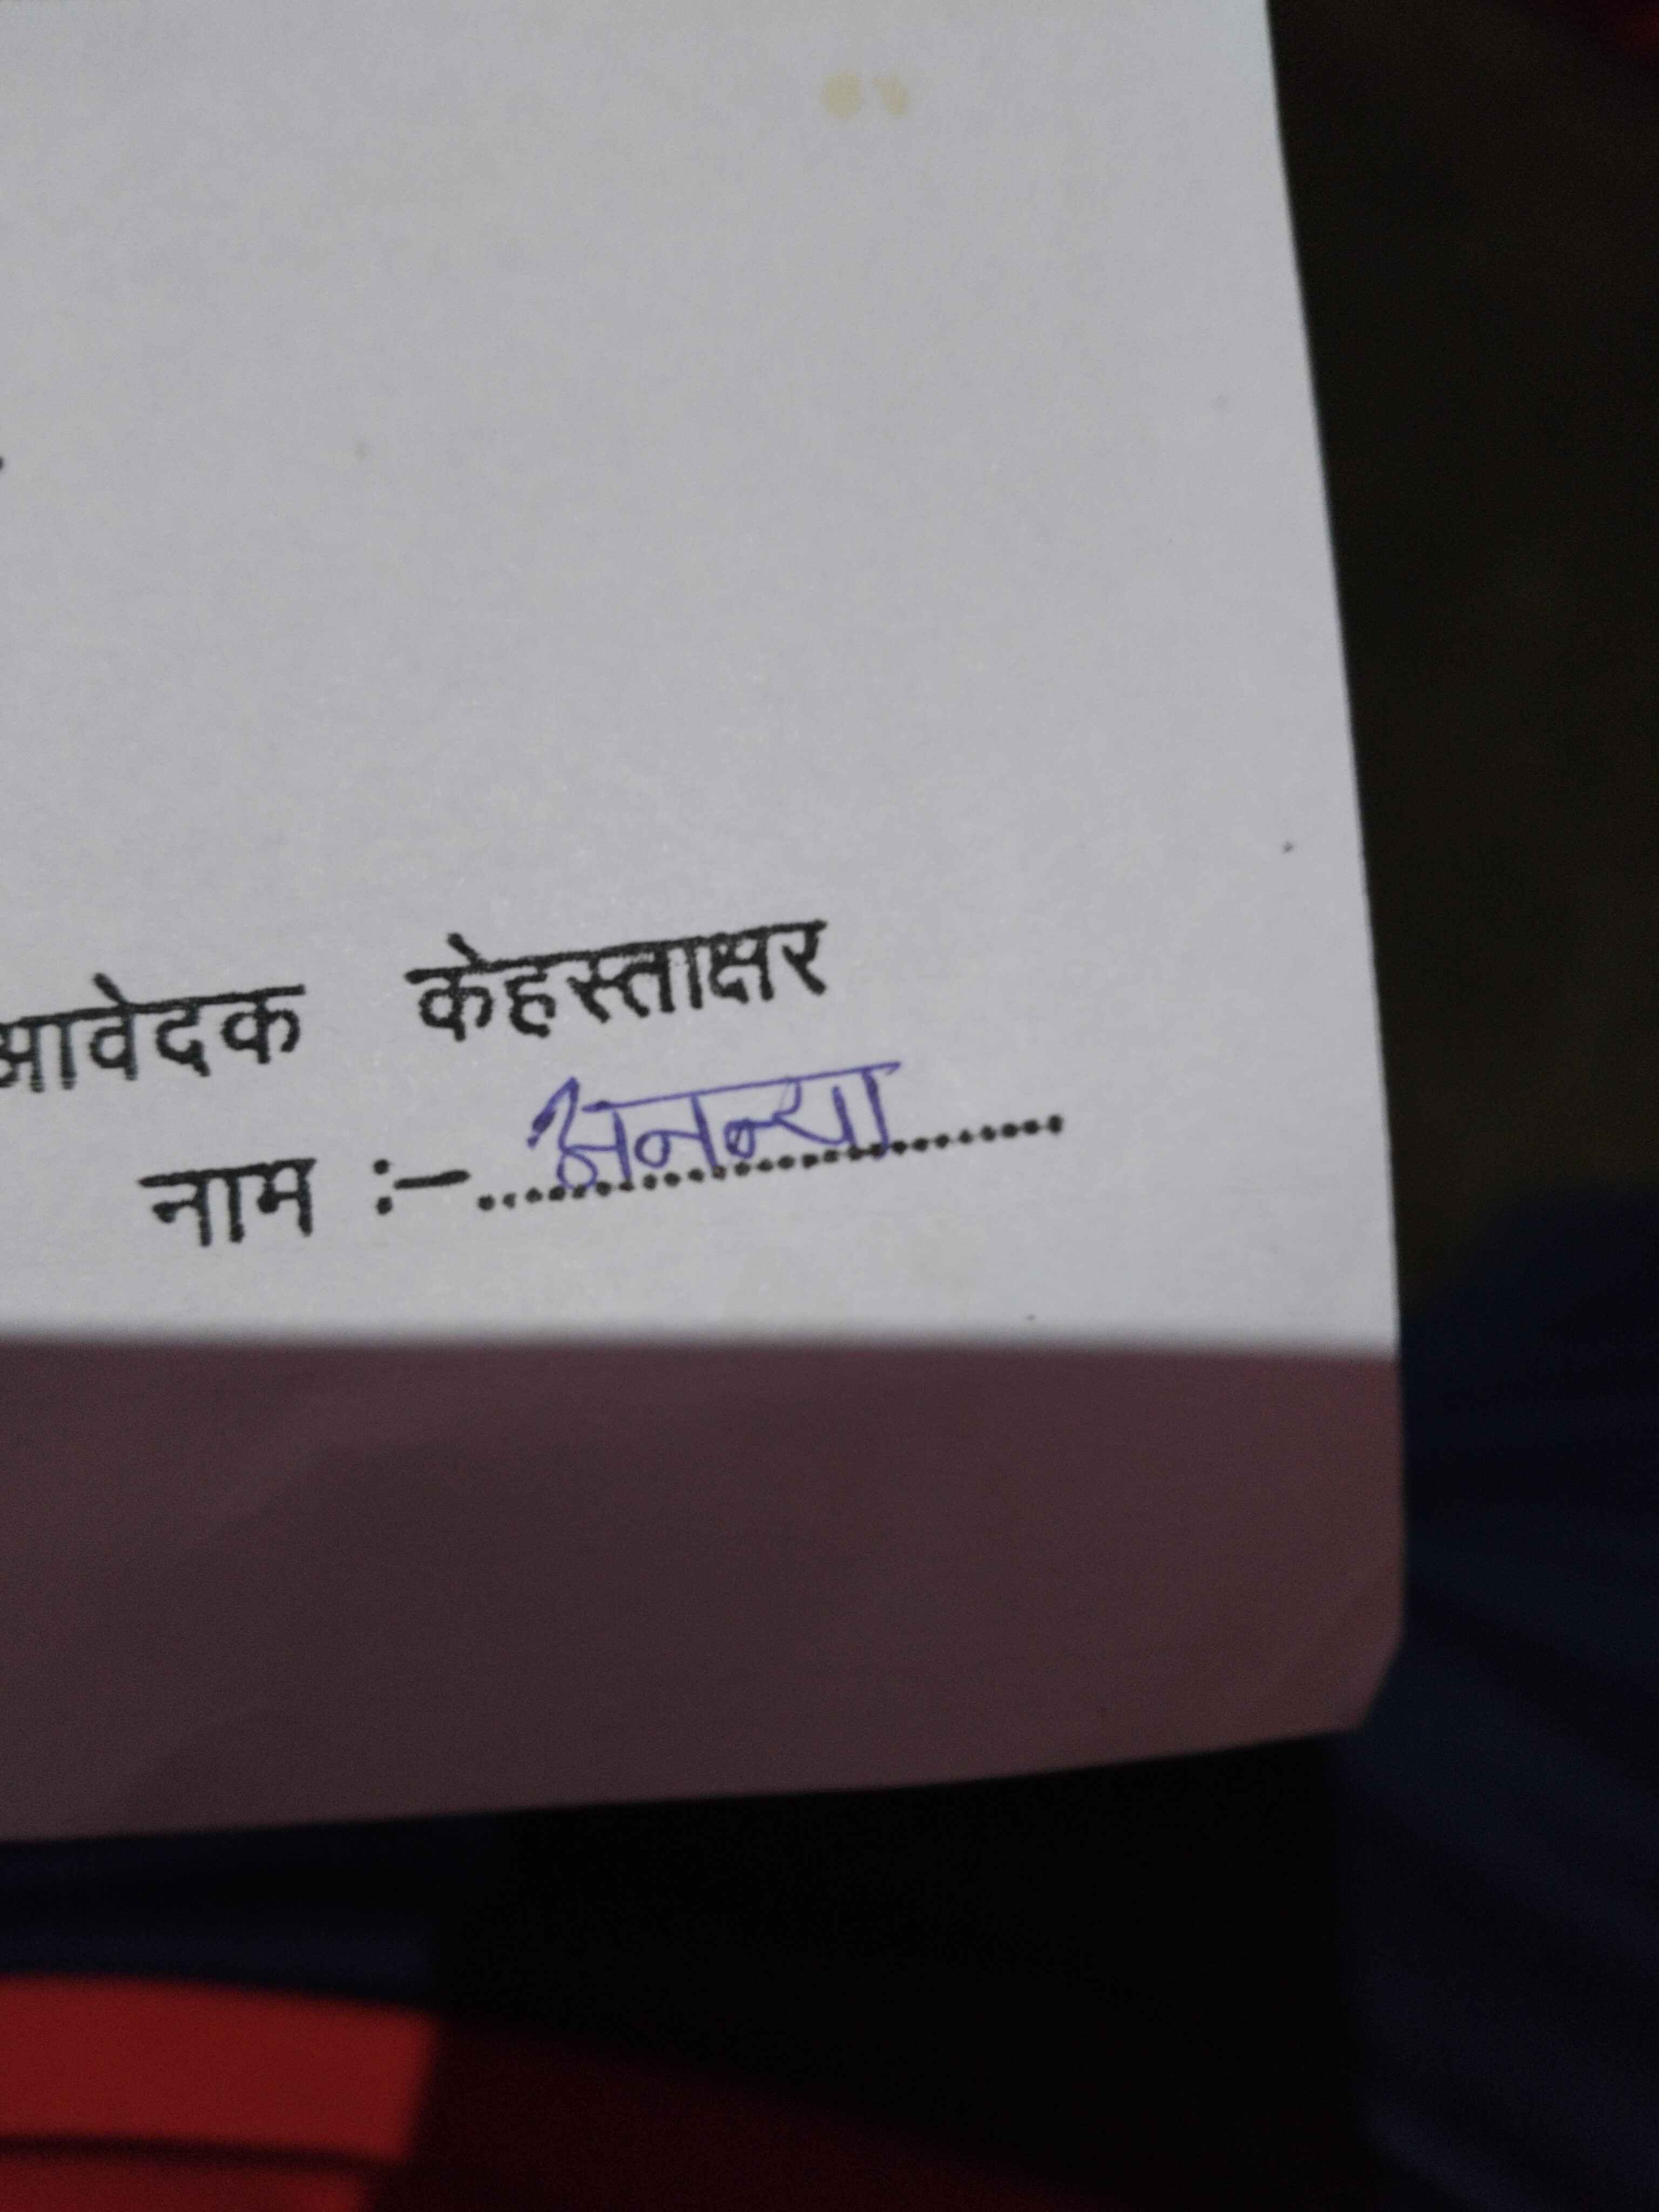 आवेदक केहस्ताक्षर
नाम :–..अनन्या..........